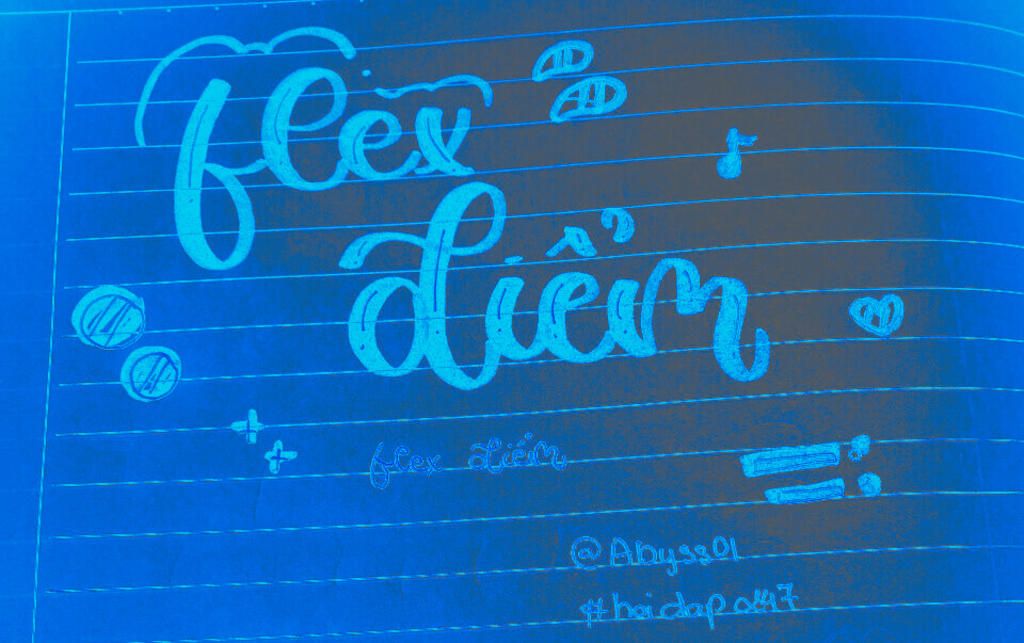 flex
điểm
flex điểm
@Abyss01
#hoidap247